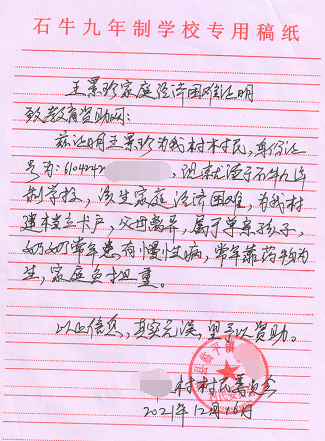 石牛九年制学校专用稿纸
王景珍家庭经济困难证明
致教育资助网：
兹证明王景珍为我村村民，身份证
号为：6104242，现就读于石牛九年
制学校，该生家庭经济困难，为我村
建档立卡户，父母离异，属于单亲孩子，
奶奶常年患有慢性病，常年靠药物为
生，家庭负担重。
以上信息，真实无误，望予以资助。
村村民委员会
2021年12月16日